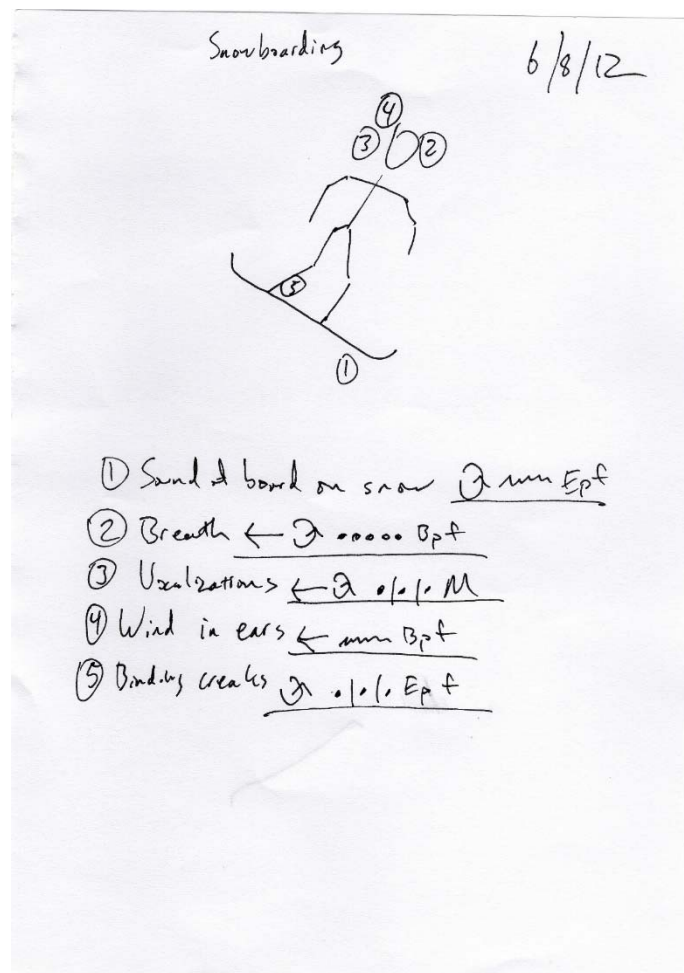 Snowboarding
6/8/12
4
3 2
5
1
1 Sound of board on snow Epf
2 Breath ← ••••• Bpf
3 Vocalizations ← •/•/• M
4 Wind in ears ← Bpf
5 Binding creaks •/•/• Epf